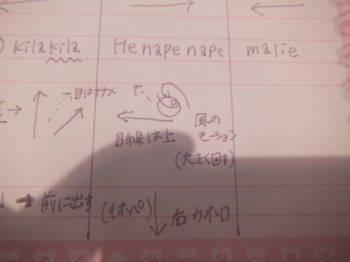 kilakila  Henapenape  malie
目はナナメ
目線は上
風の
モーション
(大きく回す)
→ 前に出す (1ホペロ) 右カホロ